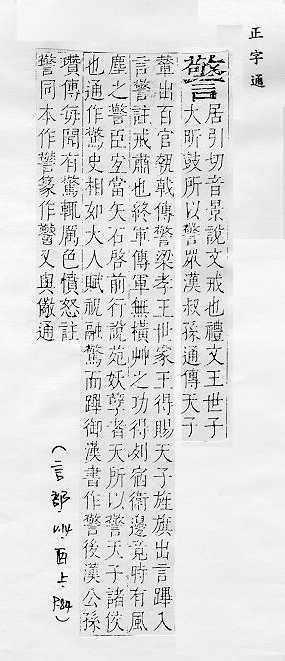 正字通
警
居引切音景說文戒也禮文王世子
大昕鼓所以警眾漢叔孫通傳天子
輦出百官執戟傳警梁孝王世家王得賜天子旌旗出言蹕入
言警註戒肅也終軍傳軍無橫艸之功得列宿衛邊竟時有風
塵之警臣宜當矢石啓前行說苑妖孽者天所以警天子諸侯
也通作驚史相如大人賦祝融驚而蹕御漢書作警後漢公孫
瓚傳每聞有驚輒厲色憤怒註
警同本作警篆作又與儆通
(言部.酉上.P84)